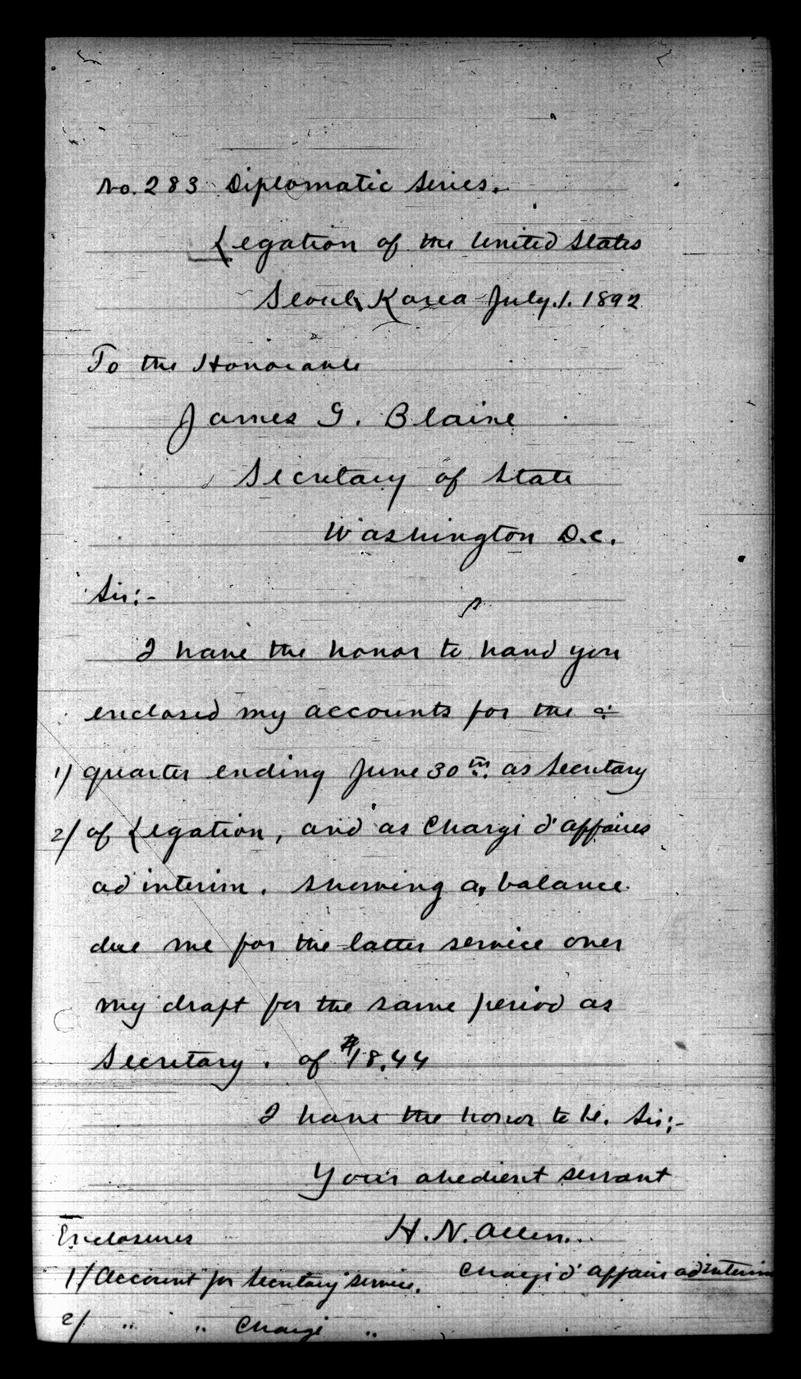 No. 283 Diplomatic Series.
Legation of the United States
Seoul, Korea July. 1. 1892
To the Honorable
James G. Blaine
Secretary of State
Washington D.C.
Sir:-
I have the honor to hand you
enclosed my accounts for the
1/ quarter ending June 30th. as Secretary
2/ of Legation, and as Chargi d'affaires
ad interim. showing a, balance
due me for the latter service over
my draft for the same period as
Secretary. of $18.44
I have the honor to be. Sir:-
Your obedient servant
H. N. Allen..
Chargi d'affairs ad interim
Enclosures
1/ Account for Secretary service.
2/ " " Chargi "